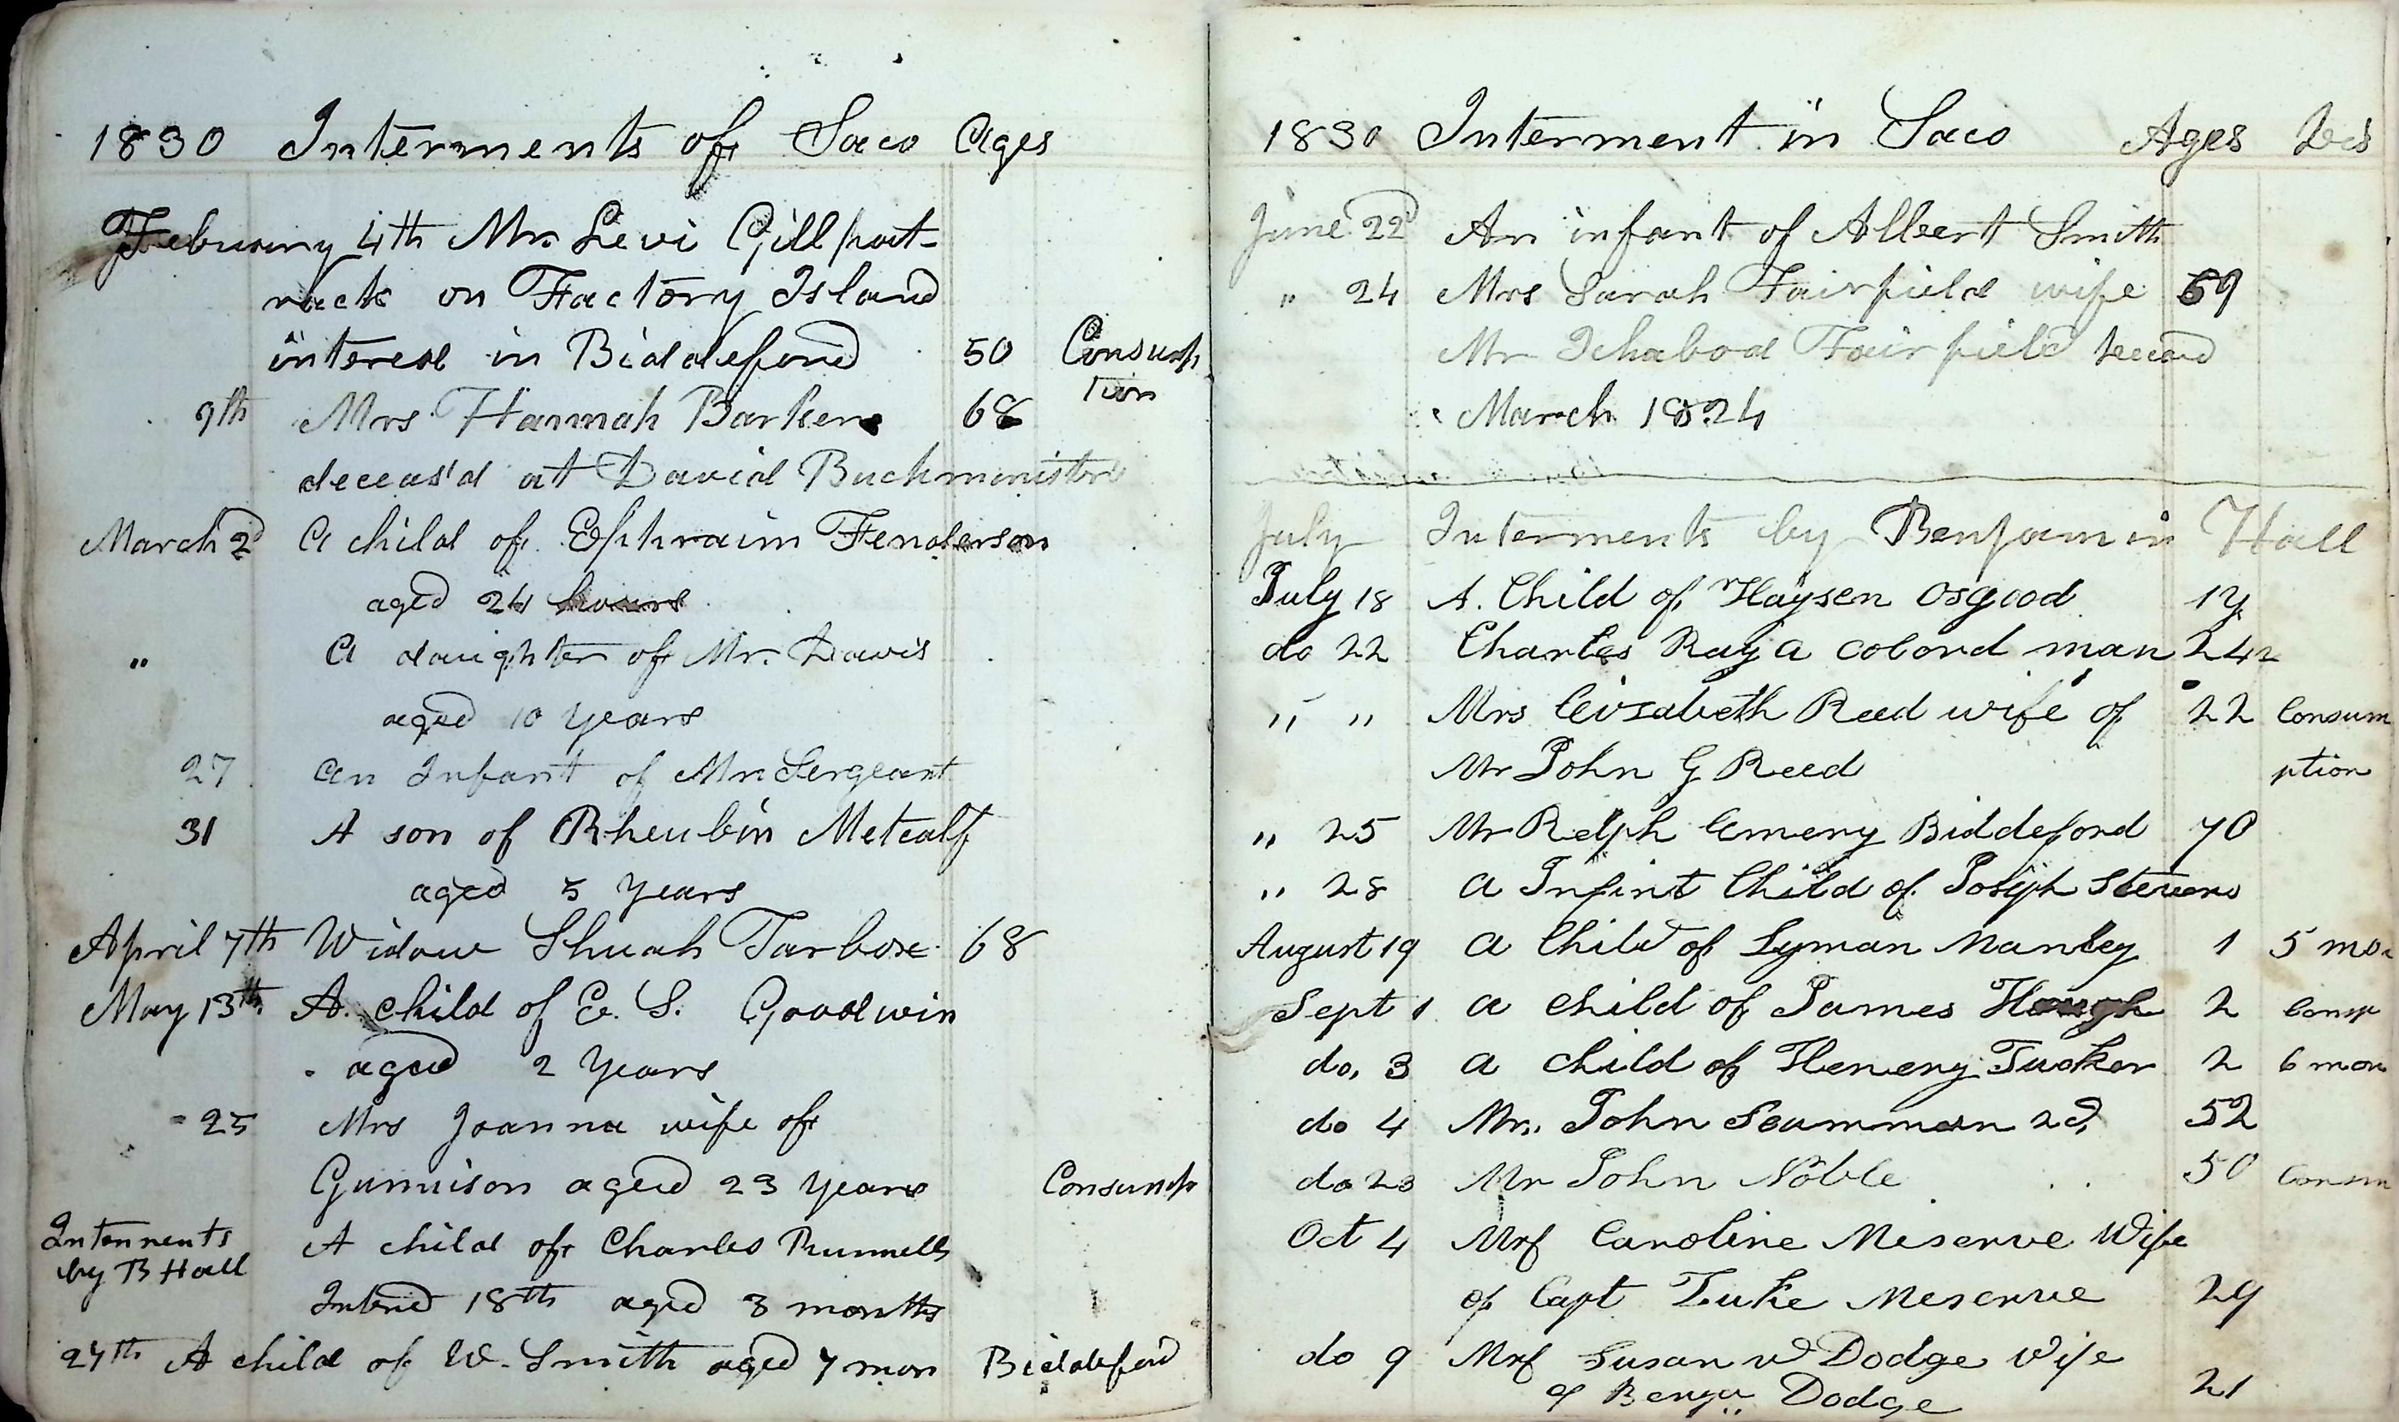 1830 Interments of Saco Ages
Februury 4th Mr. Levi Gillpat-
rick on Factory Island
intered in Biddeford 50 Consump
tion
9th Mrs Hannah Barker 68
deceas'd at David Buckministers
March 2d A child of Ephraim Fenderson
aged 24 hours
" A daughter of Mr. Davis
aged 10 years
27 An Infant of Mr Sergeant
31 A son of Rheubin Metcalf
aged 5 years
April 7th Widow Shuah Tarbox 68
May 13th A. child of E. S. Goodwin
aged 2 years
25 Mrs Joanna wife of
Gunnison aged 23 years Consump
Interments
by B Hall
A child of Charles Runnells
Intered 18th aged 3 months
27th A child of W. Smith aged 7 mon Biddeford
1830 Interment in Saco Ages
June 22d An infant of Albert Smith
" 24 Mrs Sarah Fairfield wife 69
Mr Ichabod Fairfield
March 1824
July Interments by Benjamin Hall
July 18 A. Child of Haysen Osgood 1y
do 22 Charles Ray a colord man 24
" " Mrs Elizabeth Reed wife of 22 Consum
Mr John G Reed ption
" 25 Mr Relph Emery Biddeford 70
" 28 a Infint Child of Joseph Stevens
August 19 a Child of Lyman Manley 1 5 mo
Sept 1 a child of James Hough 2 Consp
do, 3 a child of Henery Tucker 2 6 mon
do 4 Mr. John Scamman 2d, 52
do 23 Mr John Noble 50 Consm
Oct 4 Mrs Caroline Meserve Wife
of Capt Luke Meserve 29
do 9 Mrs Susan W Dodge Wife
of Benja Dodge 21